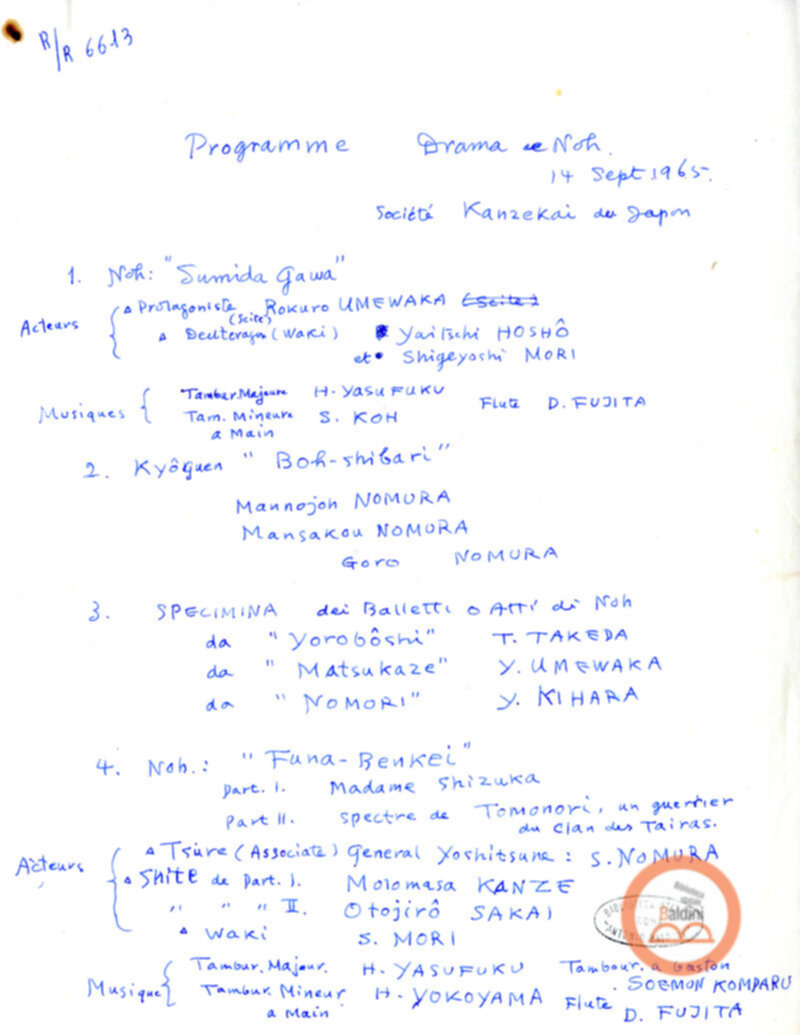 R/R 6613
Programme Drama de Noh.
14 Sept 1965.
Société Kanzekai du Japon
1. Noh: "Sumida Gawa"
Acteurs
△ Protagoniste (Scite) Rokuro UMEWAKA (Scite)
△ Deuteragon (Waki) Yaitschi HOSHÔ
et • Shigeyoshi MORI
Musiques
Tambur. Majeure H. YASUFUKU
Tam. Mineure S. KOH
a Main
Flute D. FUJITA
2. Kyôguen "Boh-shibari"
Mannojoh NOMURA
Mansakou NOMURA
Goro NOMURA
3. SPECIMINA dei Balletti o Atti di Noh
da "Yorobôshi" T. TAKEDA
da "Matsukaze" Y. UMEWAKA
da "NOMORI" Y. KIHARA
4. Noh.: "Funa-Benkei"
Part. I. Madame Shizuka
Part II. Spectre de Tomonori, un guerrier
du Clan des Tairas.
Acteurs
△ Tsure (Associate) General Yoshitsune: S. NOMURA
△ Shite de Part. I. Motomasa KANZE
" " " II. Otojirô SAKAI
△ Waki S. MORI
Musique
Tambur. Majeur. H. YASUFUKU
Tambur. Mineur. H. YOKOYAMA
a Main
Tambour. a baston
. SOEMON KOMPARU
Flute D. FUJITA
Biblioteca
Baldini